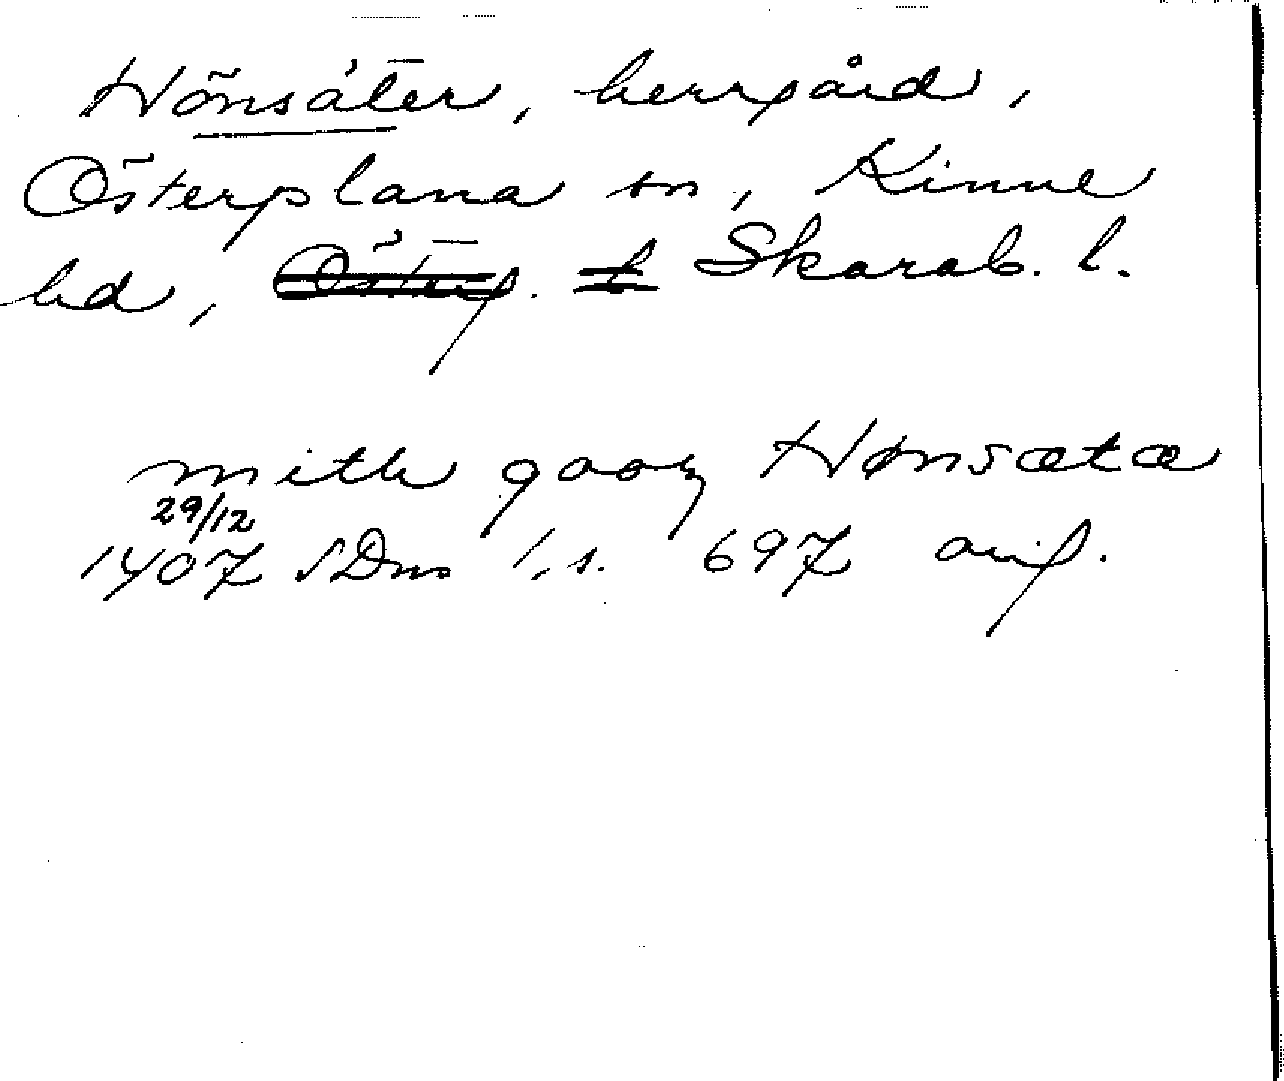 Hönsäter, herrgård,
Österplana sn, Kinne
hd, Österg. l Skarab. l.
mith gooz Hønsæta
29/12
1407 SDns 1, s. 697 avs.